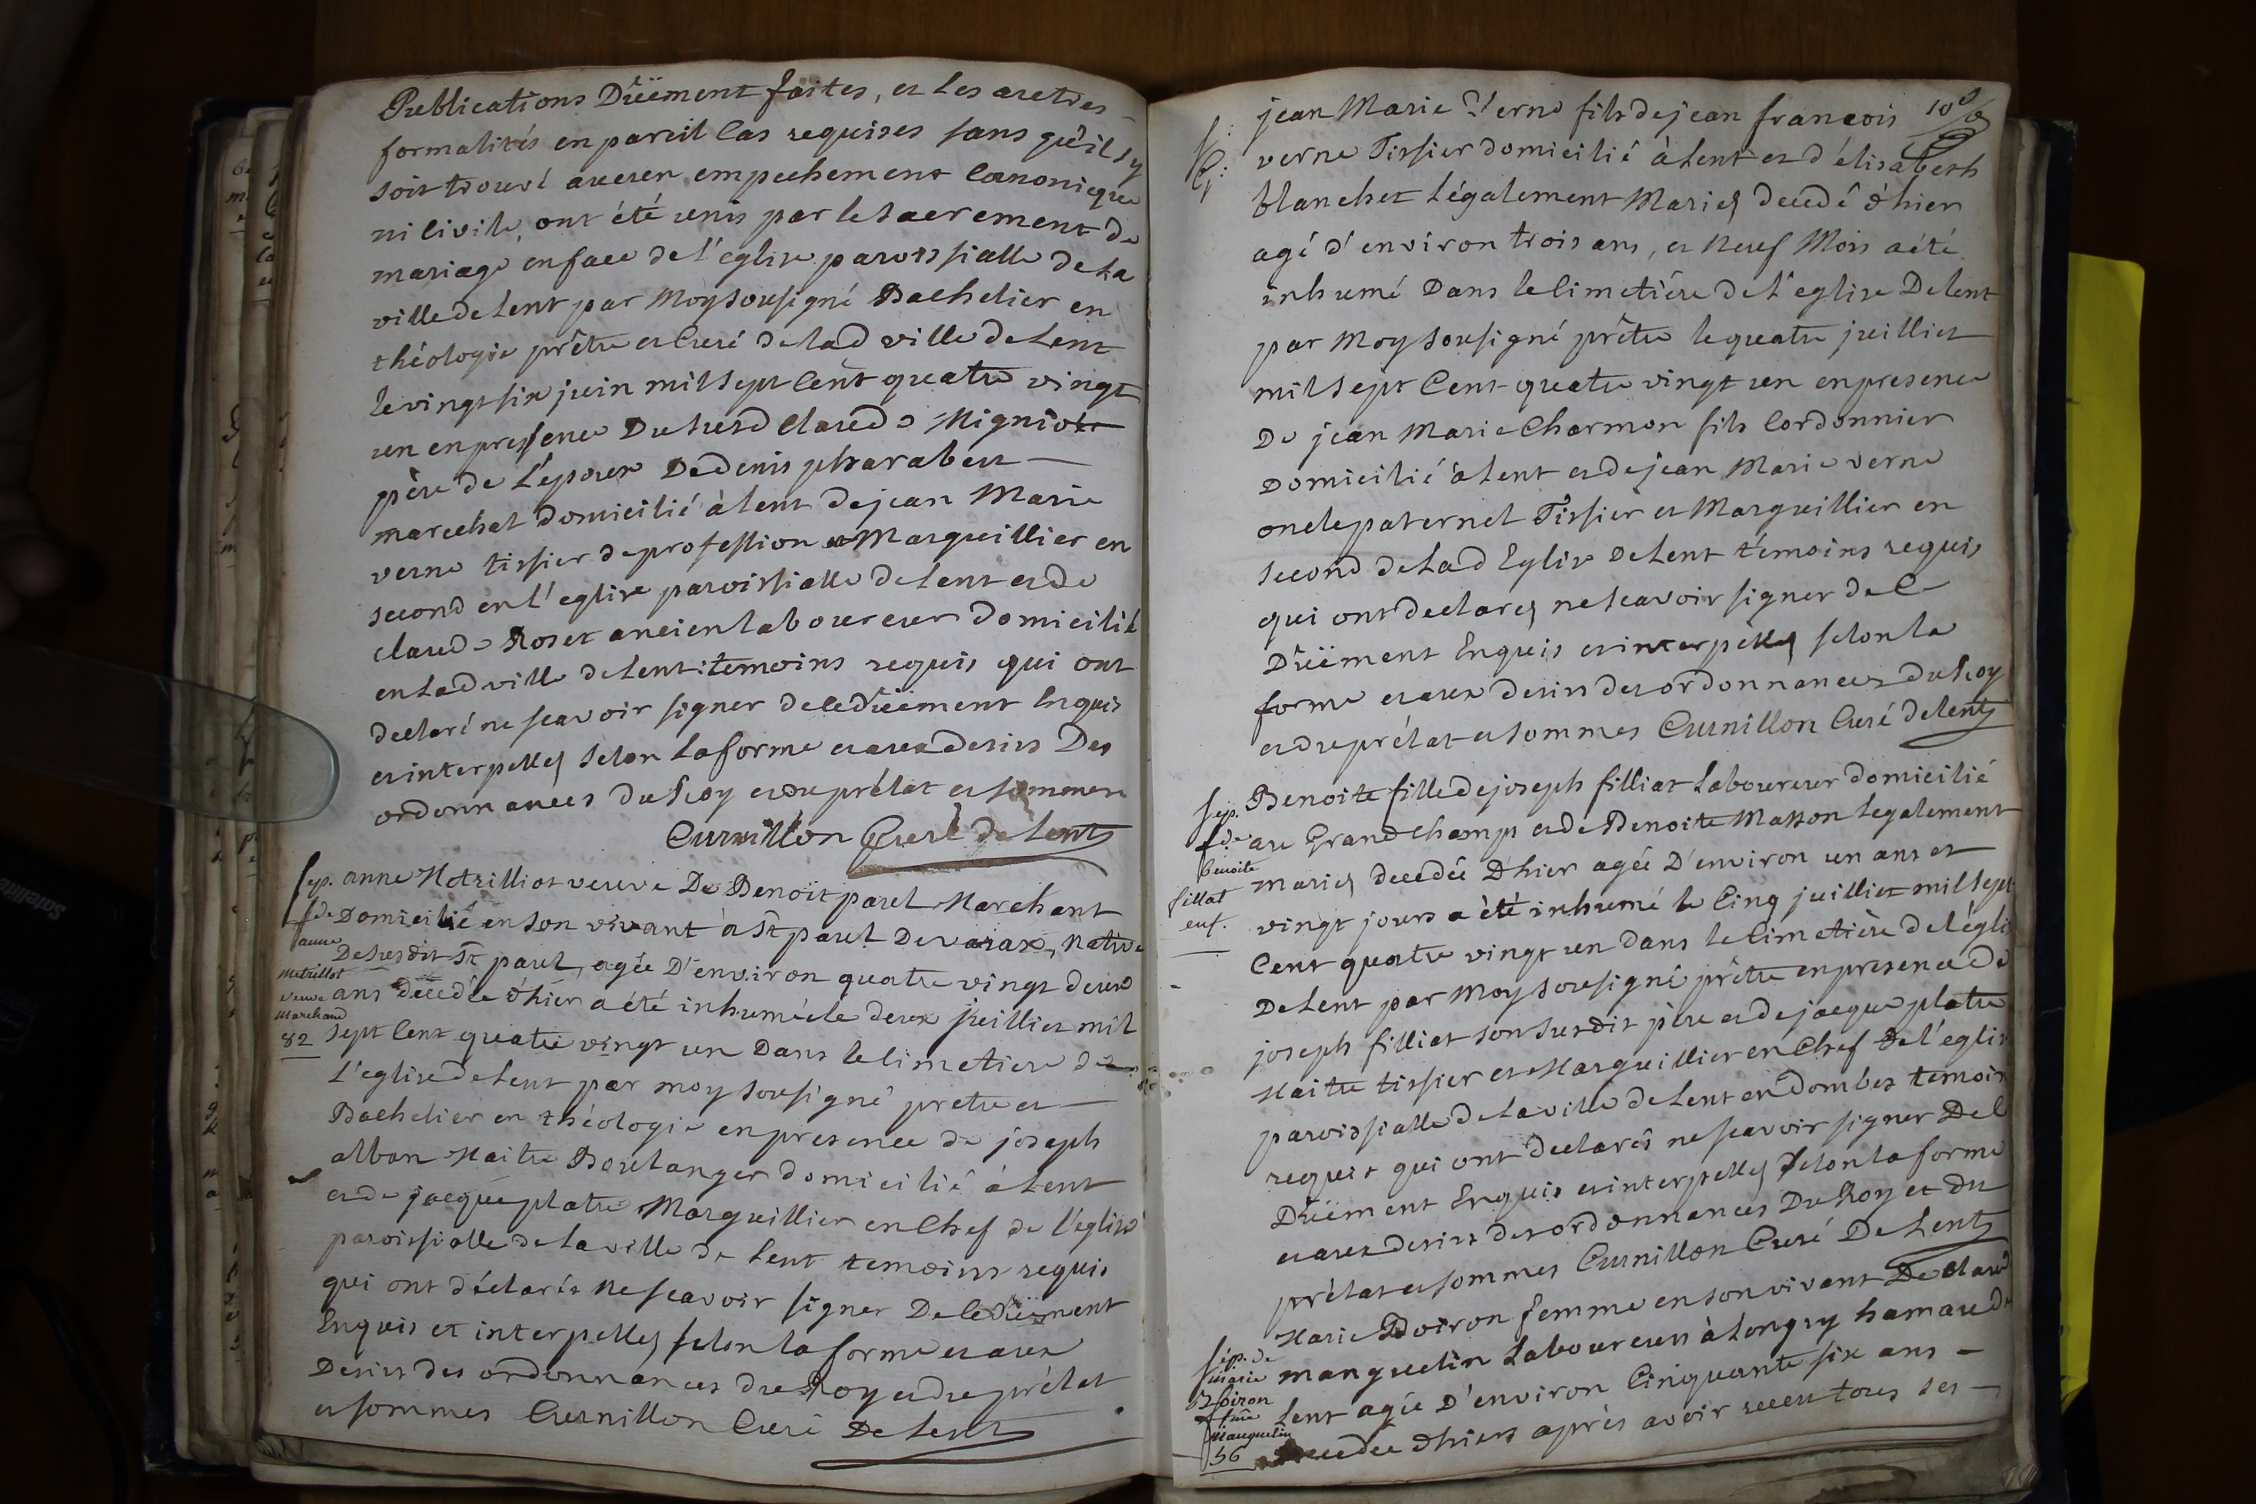 Publications Düement faites, et les autres
formalités en pareil Cas requises sans qu'il s'y
soit trouvé aucun empechement Canonique
ni Civile, ont été unis par le Sacrement de
mariage en face de l'eglise paroissialle de La
ville de Lent par Moy Sousigné Bachelier en
théologie prêtre et Curé de lad ville de Lent
le vingt six juin mil Sept Cent quatre vingt
un en presence Du Susd Claude Migniot
père de L'epoux De denis pharabeu
marechal domicilié à Lent de jean Marie
verne tissier de profession et Marguillier en
second en l'eglise paroissialle de Lent et de
claude Roset ancien laboureur domicilié
en Lad ville de Lent: temoins requis qui ont
declaré ne scavoir signer de ce düement Enquis
et interpellés Selon La forme et aux desirs Des
ordonnances du Roy et du prélat et sommes
Curnillon Curé de Lent
Sep.
fde
anne
Metrillot
veuve
Marchand
82
anne Metrilliot veuve De Benoit paul Marchant
Domicilié en Son vivant à St paul De varax, Native
De Susdit St paul, agée D'environ quatre vingt deux
ans decedée d'hier a été inhumée le deux juilliet mil
Sept Cent quatre vingt un Dans le Cimetiere de
L'eglise de Lent par moy sousigné pretre et
Bachelier en théologie en presence de joseph
alban Maitre Boulanger domicilié à Lent
et de jacque platre Marguillier en Chef de l'eglise
paroissialle de La ville de Lent temoins requis
qui ont déclarés ne scavoir signer De ce Düement
Enquis et interpellés selon la forme et aux
Desirs des ordonnances du Roy et du prélat
et sommes Curnillon Curé De Lent
jean Marie Verne fils de jean francois
verne Tissier domicilié à Lent et d'élisabeth
blanchet Légalement Mariés decedé d'hier
agé d'environ trois ans, et Neuf Mois a été
inhumé Dans le Cimetière de L'eglise De Lent
par Moy Sousigné prêtre le quatre juilliet
mil Sept Cent quatre vingt un en presence
De jean Marie Charmon fils Cordonnier
Domicilié à Lent et de jean Marie verne
oncle paternel Tissier et Marguillier en
second de Lad Eglise De Lent témoins requis
qui ont declarés ne scavoir signer de Ce
Düement Enquis et interpellés selon la
forme et aux desirs des ordonnances du Roy
et du prélat et sommes Curnillon Curé de Lent
Sep.
fde
Benoite
fillat
enf.
Benoite fille de joseph filliat Laboureur domicilié
au Grand champs et de Benoite Masson legalement
mariés decedée D'hier agée D'environ un ans et
vingt jours a été inhumé le Cinq juilliet mil Sept
Cent quatre vingt un dans le Cimetière de l'égli
De Lent par Moy Sousigné prêtre en presence de
joseph filliat son Susdit père et de jacque platre
Maitre tissier et Marguillier en Chef de l'eglis
paroissialle de La ville de Lent en dombes temoin
requis qui ont declarés ne scavoir signer De C
Düement Enquis et interpellés selon la forme
et aux desirs des ordonnances Du Roy et du
prélat et sommes Curnillon Curé De Lent
Sép. de
marie
Boiron
fme
Manguelin
56
Marie Boiron femme en son vivant De Claude
manguelin Laboureur à Longry hamau de
Lent agée D'environ Cinquante six ans
decedée d'hiers après avoir receu tous Ses